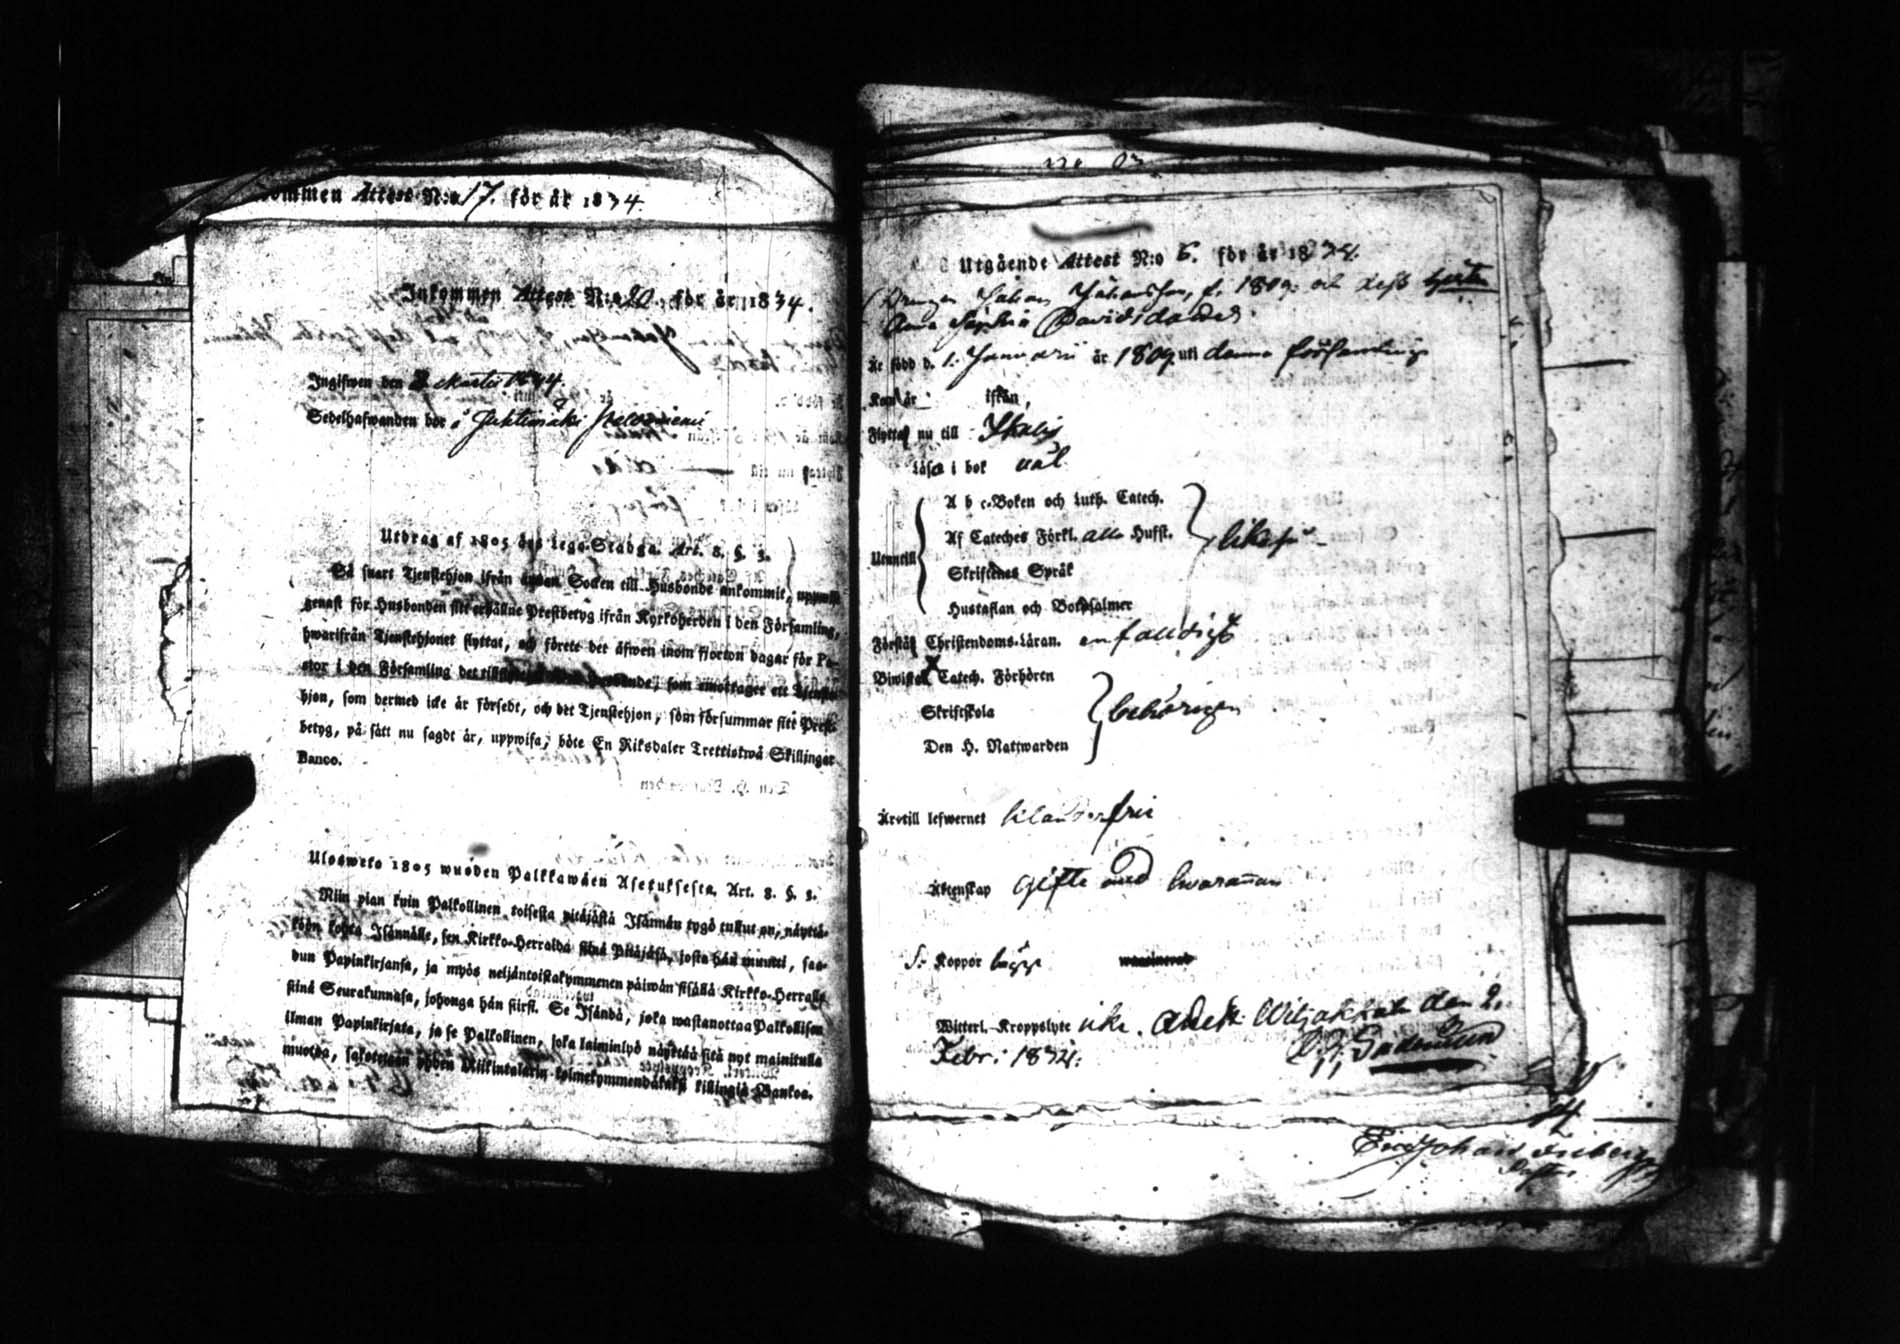 Attest N:o 17. för år 1834.
Inkommen Attest N:o 20. för år 1834.
Ingifwen den 2 Martii 1834.
Sedelhafwanden bor i
Utdrag af 1805 års Lego-Stadga. Art. 8. §. 3.
Så snart Tjenstehjon ifrån annan Socken till Husbonde ankommit, uppwise
genast för Husbonden sitt erhållne Prestbetyg ifrån Kyrkoherden i den Församling,
hwarifrån Tjenstehjonet flyttat, och förete det äfwen inom fjorton dagar för Pa-
stor i den Församling det som emottager ett Tjenste-
hjon, som dermed icke är försedt, och det Tjenstehjon, som försummar sitt Prest-
betyg, på sätt nu sagdt är, uppwisa, böte En Riksdaler Trettiotwå Skillingar
Banco.
Ulosweto 1805 wuoden Palkkawäen Asetuksesta, Art. 8. §. 3.
Niin pian kuin Palkollinen toisesta pitäjästä Isännän tygö tullut on, näyttä-
köön kohta Isännälle, sen Kirkko-Herralda siinä Pitäjäsä, josta hän muutti, saa-
dun Papinkirjansa, ja myös neljäntoistakymmenen päiwän sisällä Kirkko-Herralle
siinä Seurakunnasa, johonga hän siirsi. Se Isändä, joka wastanottaa Palkollisen
ilman Papinkirjata, ja se Palkollinen, joka laiminlyö näyttää sitä nyt mainitulla
muotoa, sakotetaan yhden Riikintalarin kolmekymmendäkaksi killingiä Bankoa.
Utgående Attest N:o 6. för år 1834.
Drengen Johan Johansson, f. 1809. och dess hustru
Anna Sophia Davidsdotter
Är född d. 1. Januarii år 1809 uti denna församling
Kom år ifrån,
Flyttar nu till Ikalis
Läser i bok väl
A b c-Boken och Luth. Catech.
Af Cateches Förkl. alla Hufst.
Utantill likaså
Skriftenes Språk
Hustaflan och Botpsalmer
Förstår Christendoms-Läran. enfaldigt
Biwistat Catech. Förhören
Skriftskola behörigen
Den H. Nattwarden
Är till lefwernet klanderfri
Äktenskap gifte med hwarannan
Koppor wacinerad
Witterl. Kroppslyte icke. Attest. Wiljakkala den 2.
Febr: 1834.